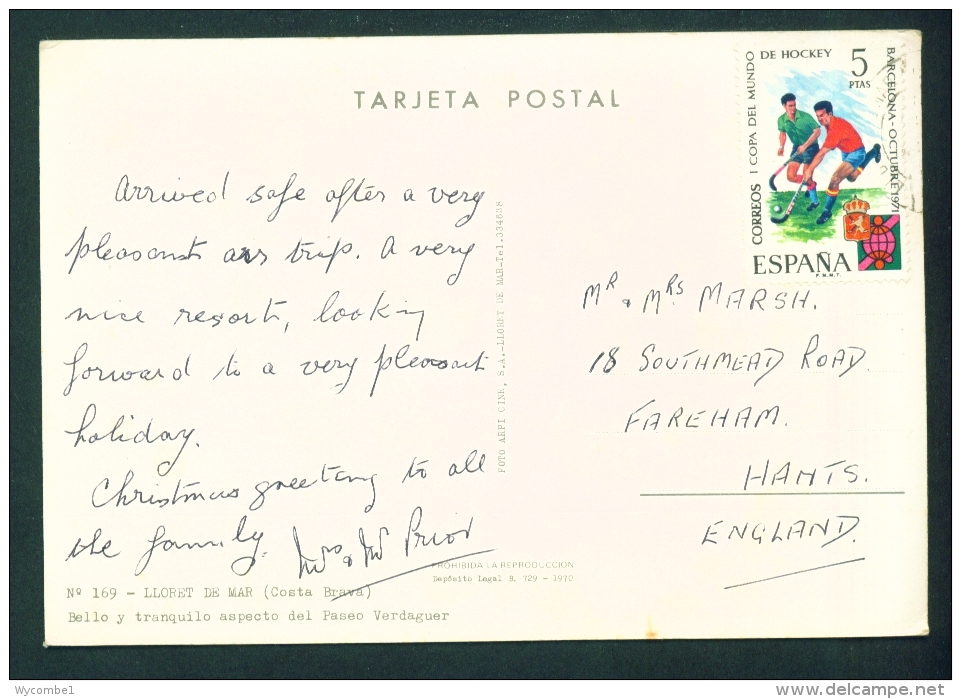 TARJETA POSTAL
CORREOS I COPA DEL MUNDO
DE HOCKEY
5
PTAS
BARCELONA - OCTUBRE 1971
ESPAÑA
F.N.M.T.
Arrived safe after a very
pleasant air trip. A very
nice resort, looking
forward to a very pleasant
holiday.
Christmas greeting to all
the family.
Mrs & Mr Prior
MR & MRS MARSH.
18 SOUTHMEAD ROAD
FAREHAM.
HANTS.
ENGLAND.
FOTO ARPI CINE, S.A.-LLORET DE MAR-Tel.334638
PROHIBIDA LA REPRODUCCION
Depósito Legal B. 729 - 1970
Nº 169 - LLORET DE MAR (Costa Brava)
Bello y tranquilo aspecto del Paseo Verdaguer
Wycombe1
www.delcampe.net